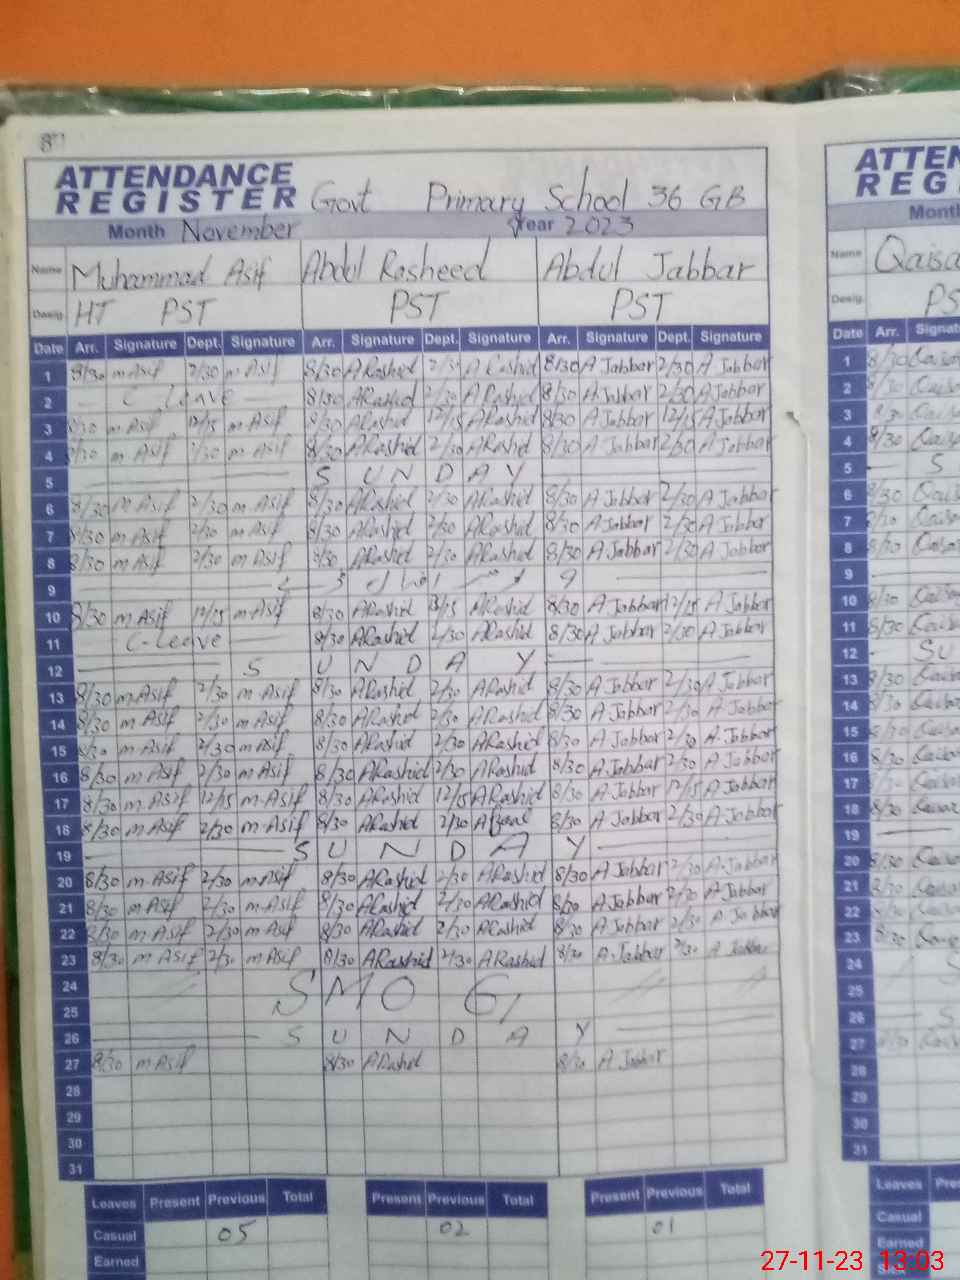 ATTENDANCE
REGISTER Govt Primary School 36 GB
Month November Year 2023
Name Muhammad Asif Abdul Rasheed Abdul Jabbar
Desig. HT PST PST PST
Date Arr. Signature Dept. Signature Arr. Signature Dept. Signature Arr. Signature Dept. Signature
1 8/30 m Asif 2/30 m Asif 8/30 ARashid 2/30 ARashid 8/30 A Jabbar 2/30 A Jabbar
2 C Leave 8/30 ARashid 2/30 ARashid 8/30 A Jabbar 2/30 A Jabbar
3 8/30 m Asif 12/15 m Asif 8/30 ARashid 12/15 ARashid 8/30 A Jabbar 12/15 A Jabbar
4 8/30 m Asif 2/30 m Asif 8/30 ARashid 2/30 ARashid 8/30 A Jabbar 2/30 A Jabbar
5 S U N D A Y
6 8/30 m Asif 2/30 m Asif 8/30 ARashid 2/30 ARashid 8/30 A Jabbar 2/30 A Jabbar
7 8/30 m Asif 2/30 m Asif 8/30 ARashid 2/30 ARashid 8/30 A Jabbar 2/30 A Jabbar
8 8/30 m Asif 2/30 m Asif 8/30 ARashid 2/30 ARashid 8/30 A Jabbar 2/30 A Jabbar
9
10 8/30 m Asif 12/15 m Asif 8/30 ARashid 12/15 ARashid 8/30 A Jabbar 12/15 A Jabbar
11 C-Leave 8/30 ARashid 2/30 ARashid 8/30 A Jabbar 2/30 A Jabbar
12 S U N D A Y
13 8/30 m Asif 2/30 m Asif 8/30 ARashid 2/30 ARashid 8/30 A Jabbar 2/30 A Jabbar
14 8/30 m Asif 2/30 m Asif 8/30 ARashid 2/30 ARashid 8/30 A Jabbar 2/30 A Jabbar
15 8/30 m Asif 2/30 m Asif 8/30 ARashid 2/30 ARashid 8/30 A Jabbar 2/30 A Jabbar
16 8/30 m Asif 2/30 m Asif 8/30 ARashid 2/30 ARashid 8/30 A Jabbar 2/30 A Jabbar
17 8/30 m Asif 12/15 m Asif 8/30 ARashid 12/15 ARashid 8/30 A Jabbar 12/15 A Jabbar
18 8/30 m Asif 2/30 m Asif 8/30 ARashid 2/30 8/30 A Jabbar 2/30 A Jabbar
19 S U N D A Y
20 8/30 m Asif 2/30 m Asif 8/30 ARashid 2/30 ARashid 8/30 A Jabbar 2/30 A Jabbar
21 8/30 m Asif 2/30 m Asif 8/30 ARashid 2/30 ARashid 8/30 A Jabbar 2/30 A Jabbar
22 8/30 m Asif 2/30 m Asif 8/30 ARashid 2/30 ARashid 8/30 A Jabbar 2/30 A Jabbar
23 8/30 m Asif 2/30 m Asif 8/30 ARashid 2/30 ARashid 8/30 A Jabbar 2/30 A Jabbar
24 SMOG
25
26 S U N D A Y
27 8/30 m Asif 8/30 ARashid 8/30 A Jabbar
28
29
30
31
Leaves Present Previous Total Present Previous Total Present Previous Total
Casual 05 02 01
Earned
ATTEN
REG
Month
Name Qaisa
Desig. PS
Date Arr. Signat
1 8/30
2
3
4 8/30
5 S
6
7
8
9
10
11
12 SU
13
14
15
16
17
18
19
20
21
22
23
24 S
25
26 S
27
28
29
30
31
Leaves Pre
Casual
Earned
27-11-23 13:03